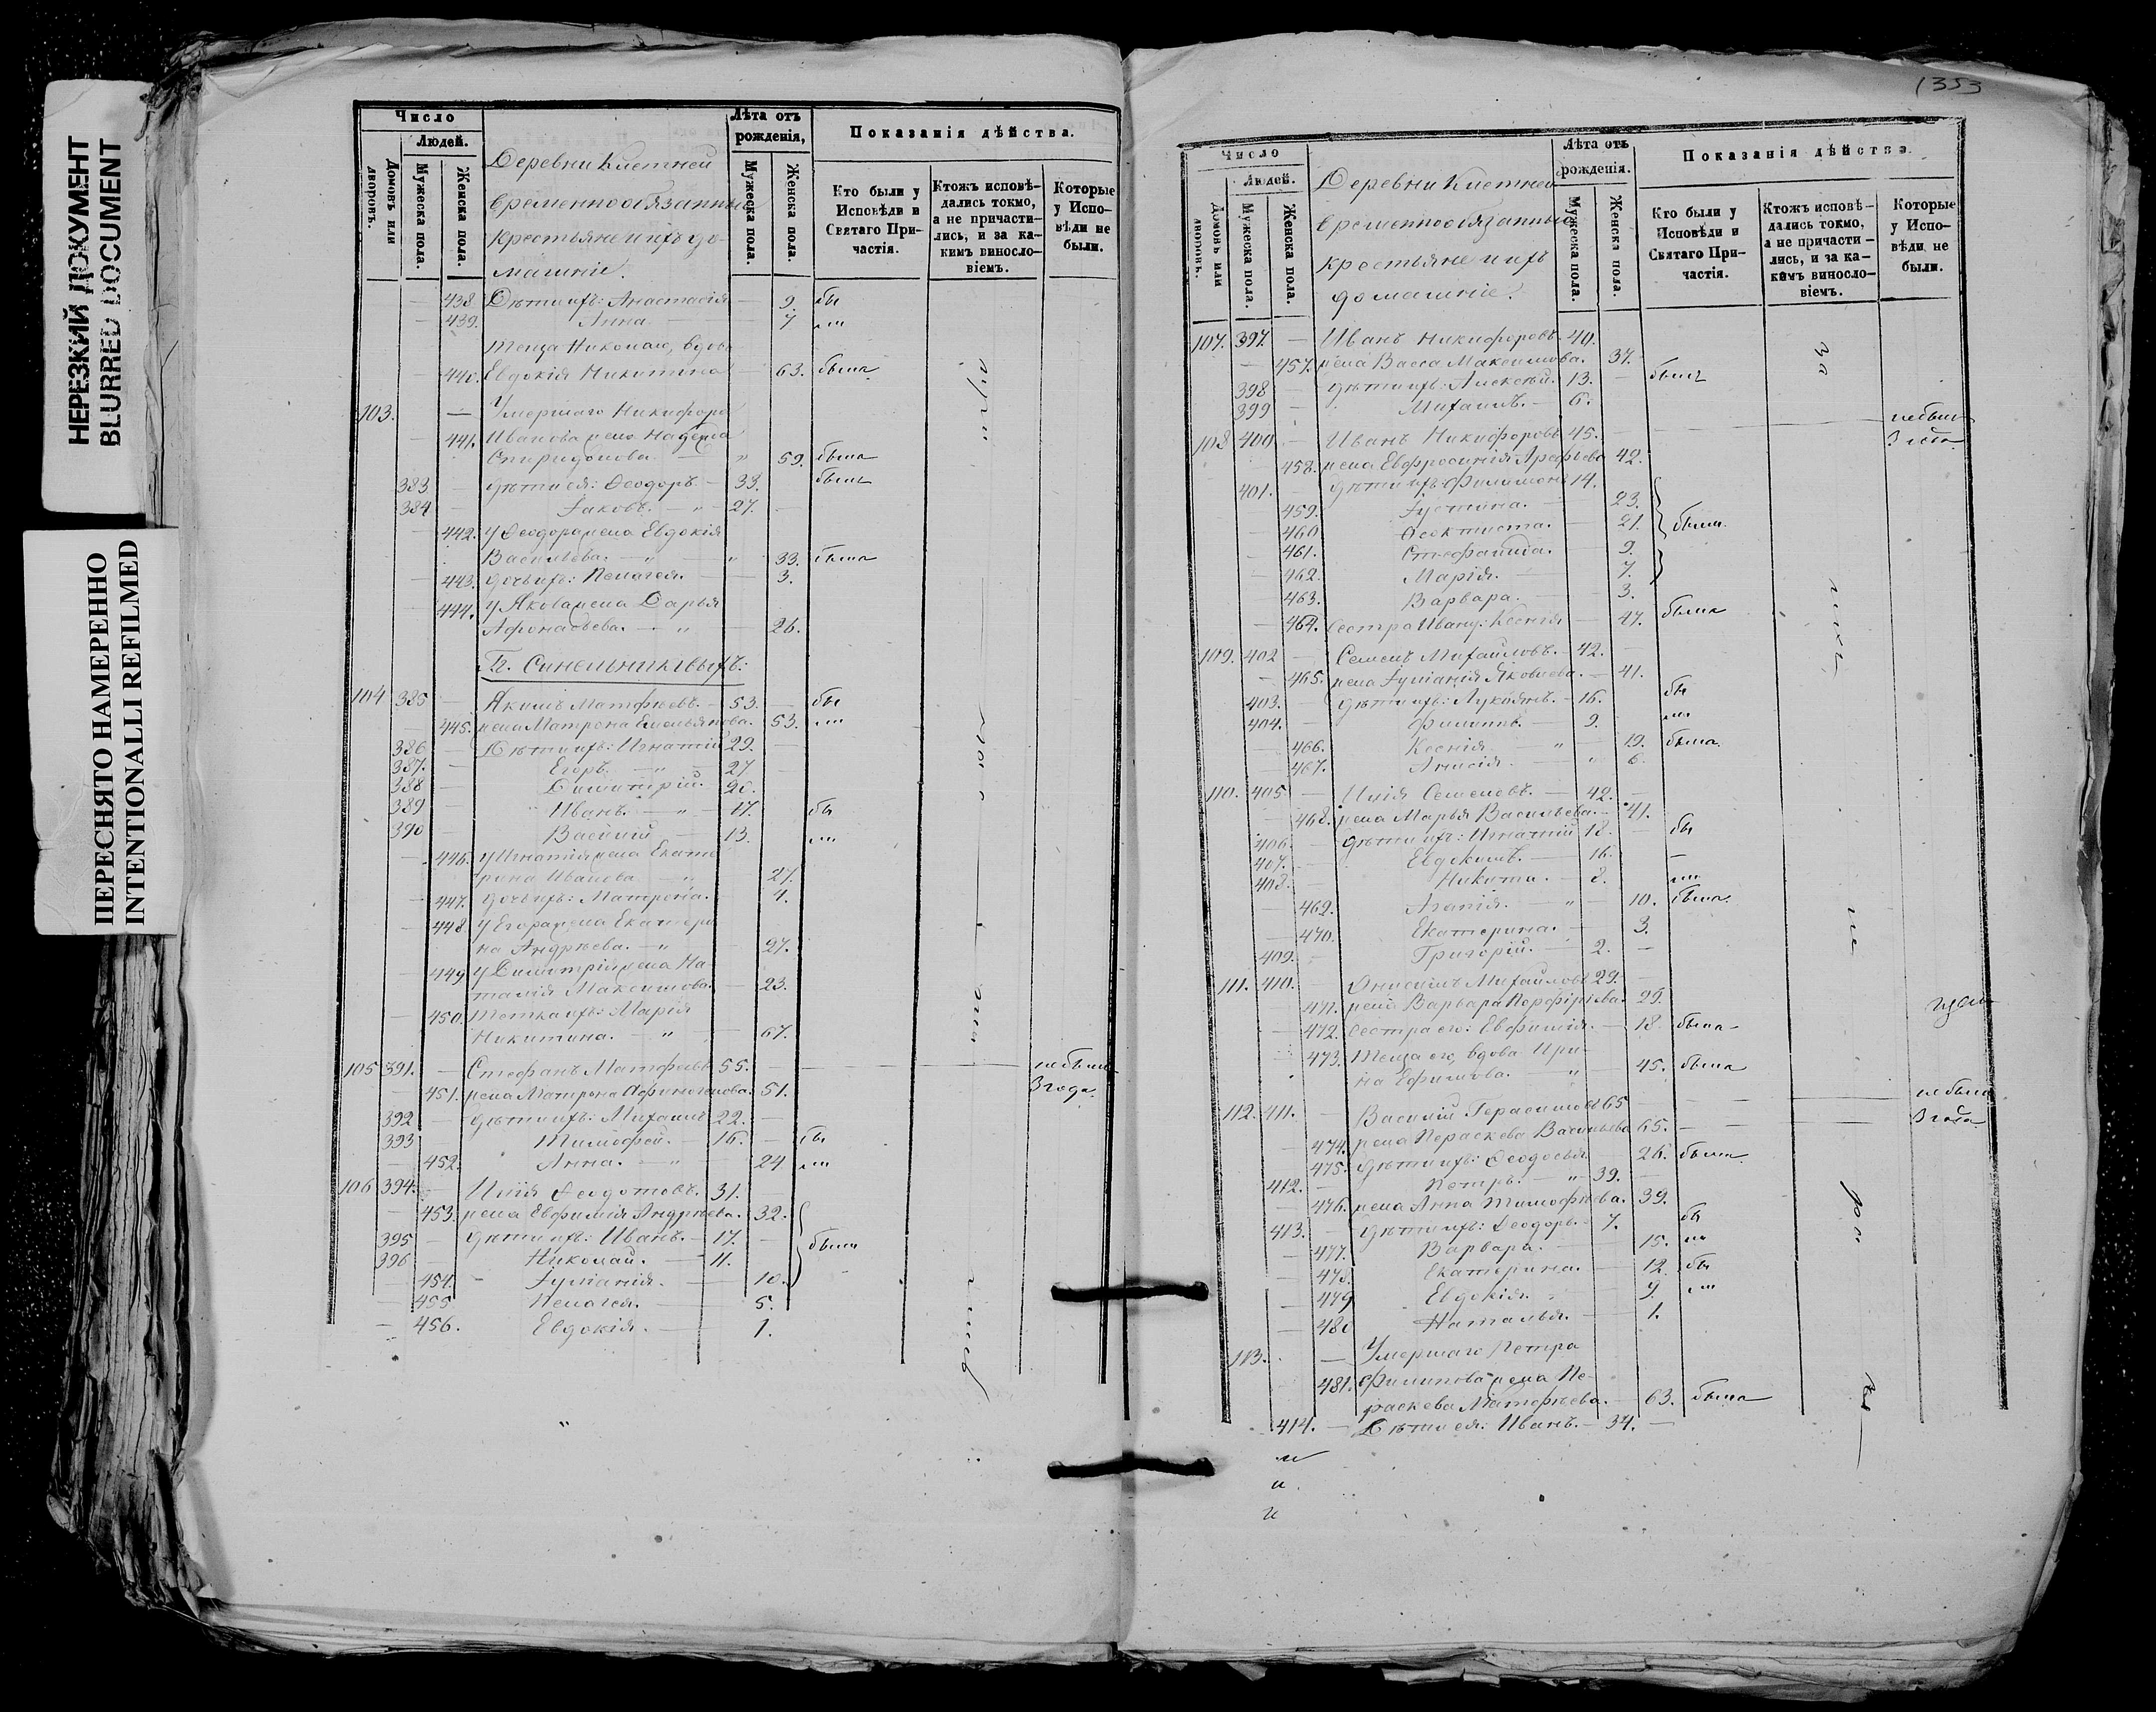 НЕРЕЗКИЙ ДОКУМЕНТ
BLURRED DOCUMENT
ПЕРЕСНЯТО НАМЕРЕННО
INTENTIONALLI REFILMED
Число
Людей.
Домовъ или дворовъ.
Мужеска пола.
Женска пола.
Деревни
временнообязанные
крестьяне и ихъ до-
машніе.
Лѣта отъ рожденія,
Мужеска пола.
Женска пола.
Показанія дѣйства.
Кто были у Исповѣди и Святаго При-частія.
Ктожъ исповѣ-дались токмо, а не причасти-лись, и за ка-кимъ винословіемъ.
Которые у Испо-вѣди не были.
438 Дѣти ихъ: Анастасія 9. бы
439. Анна 7 ли
Теща Николаю, вдова
440. Евдокія Никитина 63. была
103. — Умершаго Никифора
441. Иванова жена Надежда
Спиридонова. 59. была
383 — дѣти ея: Ѳеодоръ. 33. былъ
384 Іаковъ. 27. —
442. У Ѳеодора жена Евдокія
Васильева. 33. была
443. дочь ихъ: Пелагея. 3.
444. У Якова жена Дарья
Афонасьева. 26.
Гг. Синельниковыхъ:
104 385 — Якимъ Матѳѣевъ. 53. бы
445. жена Матрона Емельянова. 53. ли
386 — Дѣти ихъ: Игнатій 29. —
387. — Егоръ. 27
388 — Димитрій. 20.
389 — Иванъ. 17. бы
390 — Василій 13. ли
446. У Игнатія жена Екате
рина Иванова 27.
447. дочь ихъ: Матрона. 4.
448 У Егора жена Екатери
на Андрѣева. 27.
449 У Димитрія жена На-
талія Максимова. 23.
450. Тетка ихъ: Марія
Никитина. 67.
105 391. — Стефанъ Матѳѣевъ 55. не были
451. жена Матрона Афиногенова. 51. 3 года.
392 — дѣти ихъ: Михаилъ 22. —
393 Тимоѳей. 16. — бы
452. Анна. 24 ли
106 394. — Илія Ѳеодотовъ. 31.
453. жена Евфимія Андрѣева. 32.
395 — дѣти ихъ: Иванъ. 17. — были
396 — Николай. 11.
454. Іуліанія. 10.
455 Пелагея. 5.
456. Евдокія. 1.
1353
Число
Людей.
Домовъ или дворовъ.
Мужеска пола.
Женска пола.
Деревни
временнообязанные
крестьяне и ихъ
домашніе.
Лѣта отъ рожденія.
Мужеска пола.
Женска пола.
Показанія дѣйства
Кто были у Исповѣди и Святаго При-частія.
Ктожъ исповѣ-дались токмо, а не причасти-лись, и за ка-кимъ винословіемъ.
Которые у Испо-вѣди не были.
107. 397. — Иванъ Никифоровъ. 40.
457. жена Васса Максимова. 37.
398 — дѣти ихъ: Алексѣй. 13. — былъ
399 — Михаилъ. 6.
108 400 — Иванъ Никифоровъ 45. — не былъ
3 года.
458. жена Евфросинія Арефьева 42.
401. — дѣти ихъ: Филимонъ 14.
459. Іустина. 23.
460 Ѳеоктиста. 21. были.
461. Стефанида. 9.
462. Марія. 7.
463. Варвара. 3.
464. Сестра Ивану: Ксенія 47. была
109. 402 — Семенъ Михайловъ. 42. —
465. жена Іуліанія Яковлева. 41.
403. — дѣти ихъ: Лукіянъ. 16. бы
404. — Филиппъ. 9. ли
466. Ксенія 19. была.
467. Анисія. 6.
110. 405 — Илія Семеновъ. 42. —
468. жена Марья Васильева. 41.
406. — дѣти ихъ: Игнатій 18. — бы
407. — Евдокимъ. 16. —
408. — Никита. 8. ли
462. Агапія. 10. была.
470. Екатерина. 3.
409. — Григорій. 2. —
111. 410. — Онисимъ Михайловъ 29. —
471. жена Варвара Порфирьева. 29.
472. Сестра его: Евфимія. 18. была
473. Теща его, вдова Ири-
на Ефимова. 45. была
112. 411. — Василій Герасимовъ 65 — не были
474. жена Параскева Васильева 65. 3 года
475. дѣти ихъ: Ѳеодосья 26. была.
412. — Петръ. 39.
476. жена Анна Тимоѳѣева. 39.
413. — дѣти ихъ: Ѳеодоръ. 7. бы
477. Варвара. 15. ли
478. Екатерина. 12. бы
479 Евдокія. 9. ли
480 Наталья. 1.
113. — Умершаго Петра
481. Филипова жена Па-
раскева Матѳѣева. 63. была
414. — Дѣти ея: Иванъ. 34. —